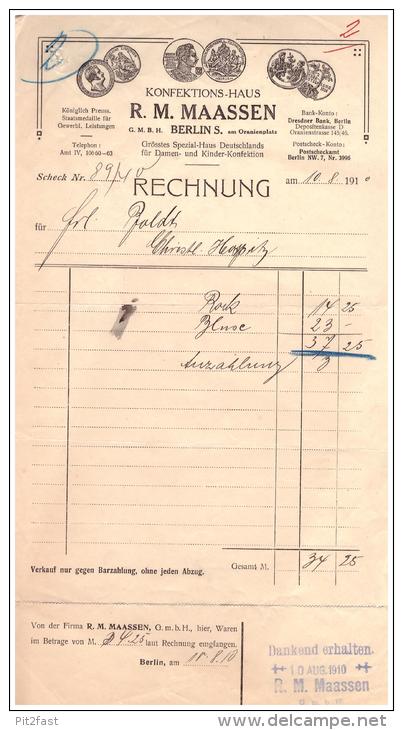 2
KONFEKTIONS-HAUS
R. M. MAASSEN
G. M. B. H. BERLIN S. am Oranienplatz
Grösstes Spezial-Haus Deutschlands
für Damen- und Kinder-Konfektion
Königlich Preuss.
Staatsmedaille für
Gewerbl. Leistungen
Telephon:
Amt IV, 10660-63
Bank-Konto:
Dresdner Bank, Berlin
Depositenkasse D
Oranienstrasse 145/46.
Postscheck-Konto:
Postscheckamt
Berlin NW. 7, Nr. 3996
Scheck Nr.
RECHNUNG
am 10.8. 1910
für Frl.
Christl. Hospitz
Rock 14 25
Bluse 23 -
37 25
Anzahlung 3
Verkauf nur gegen Barzahlung, ohne jeden Abzug.
Gesamt M. 34 25
Von der Firma R. M. MAASSEN, G. m. b. H., hier, Waren
im Betrage von M. 34.25 laut Rechnung empfangen.
Berlin, am 10.8.10
Dankend erhalten.
10 AUG. 1910
R. M. Maassen
Pit2fast
www.delcampe.net